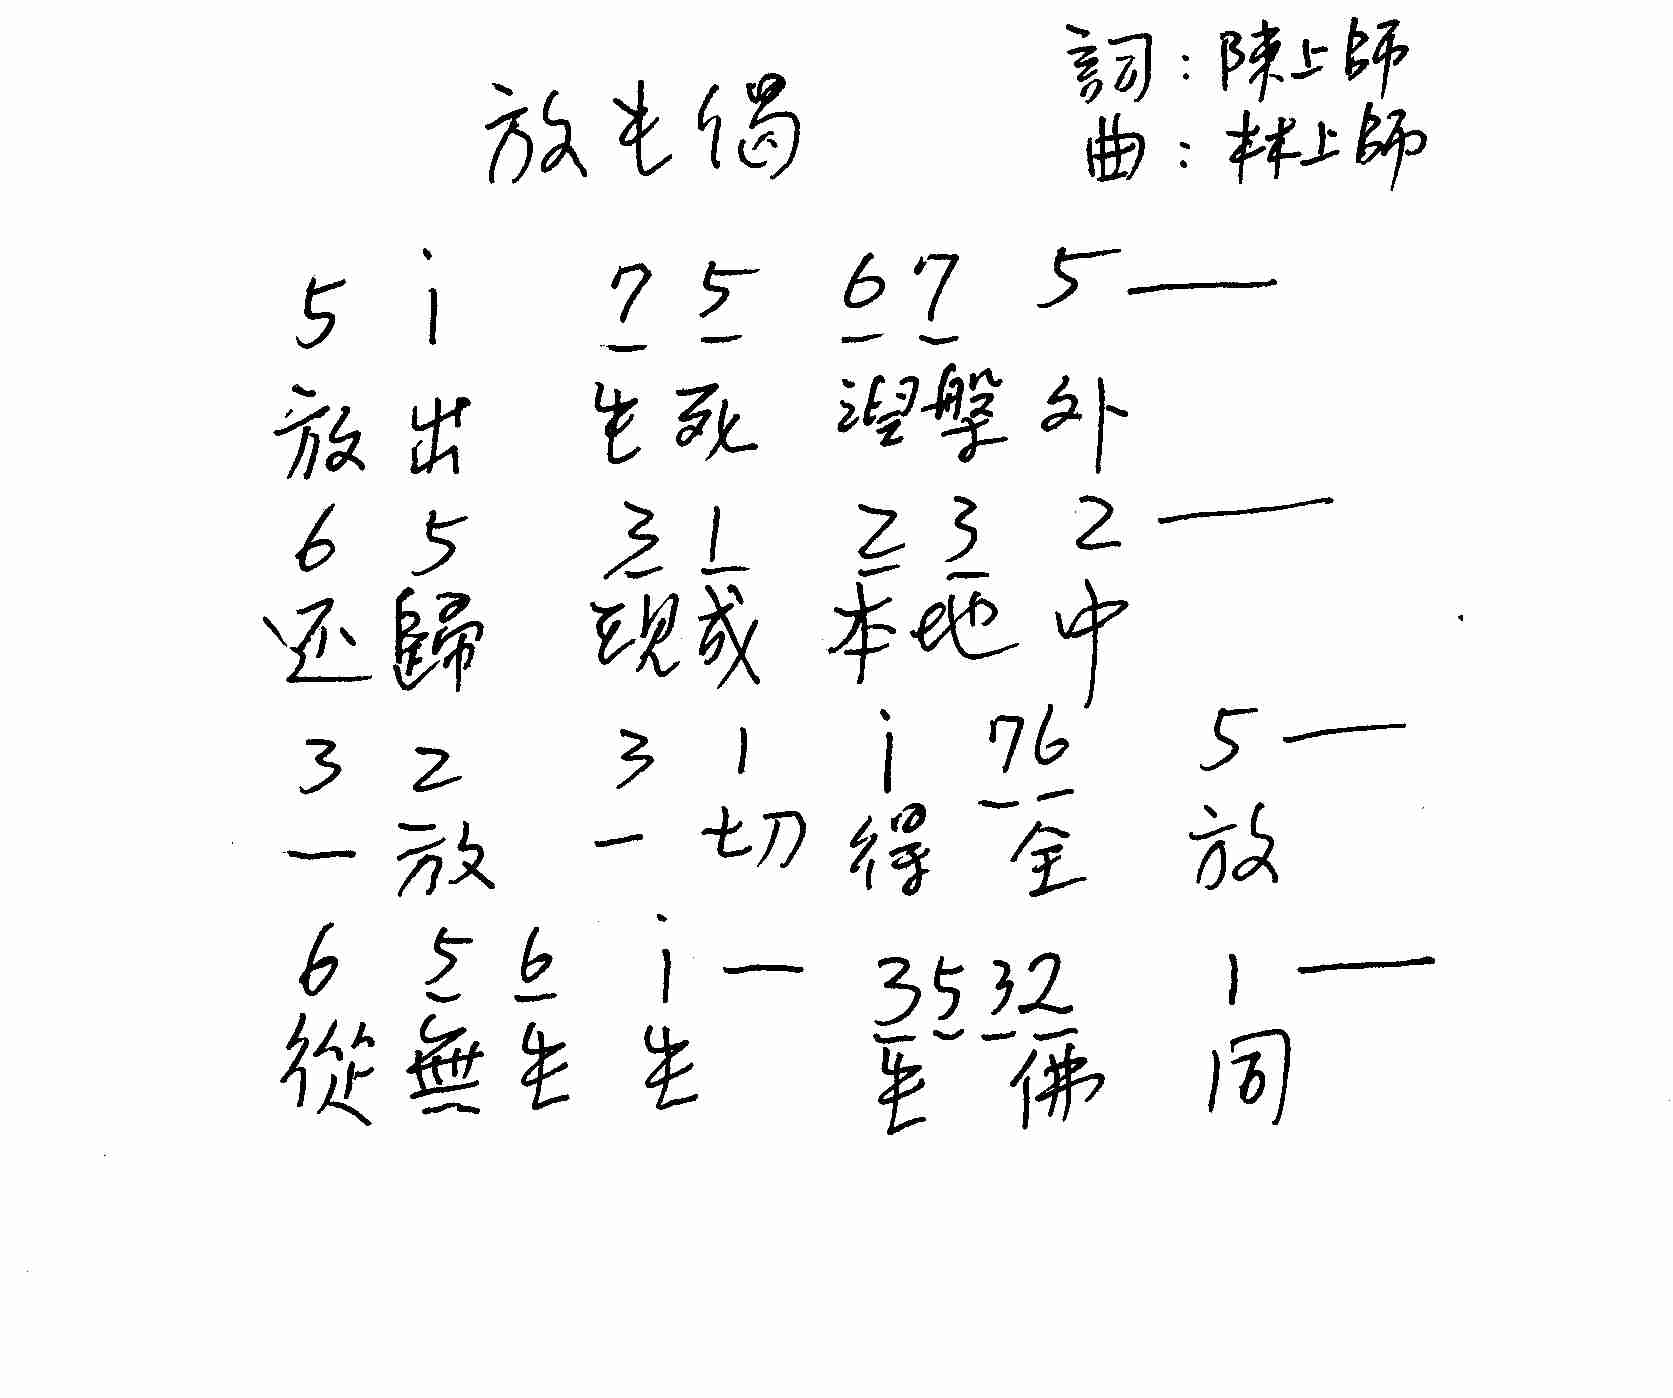 放生偈
詞：陳上師
曲：林上師
5 i 7 5 6 7 5 —
放出 生死 涅槃 外
6 5 3 1 2 3 2 —
还歸 現成 本地 中
3 2 3 1 i 76 5 —
一放 一切 得 全 放
6 5 6 i — 3532 1 —
從無生生 生佛同